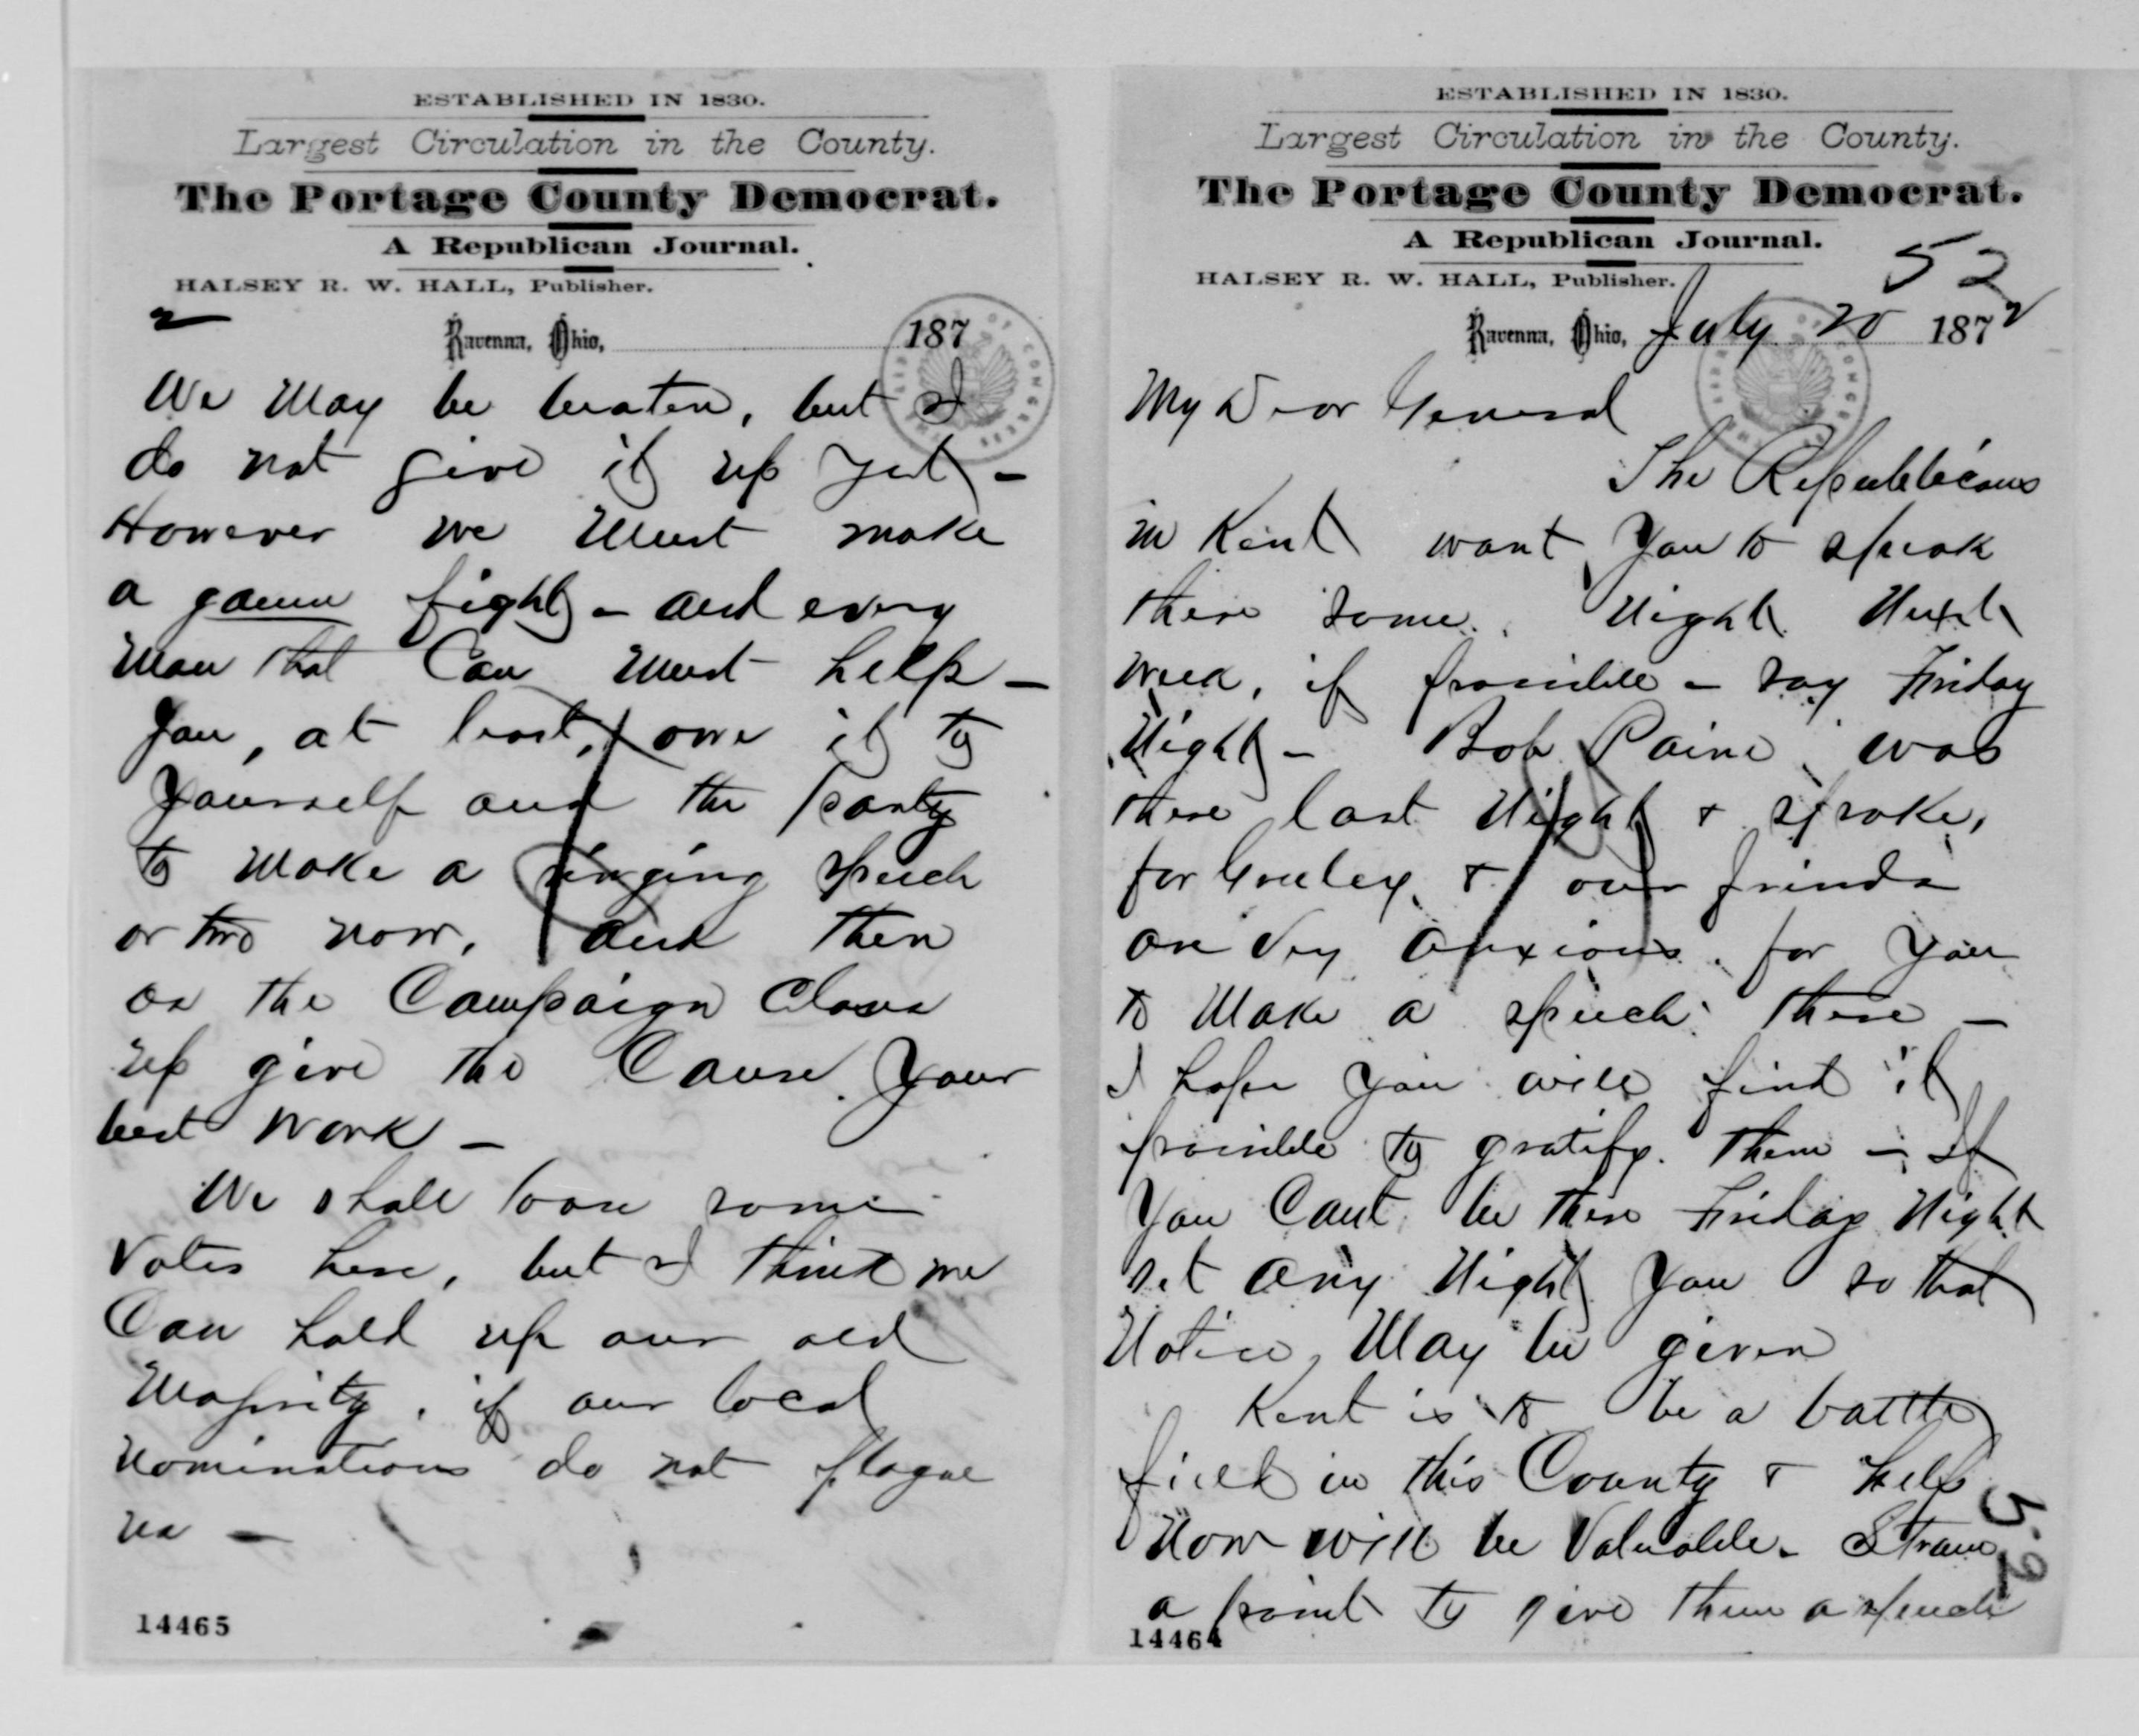 ESTABLISHED IN 1830.
Largest Circulation in the County.
The Portage County Democrat.
A Republican Journal.
HALSEY R. W. HALL, Publisher.
2
Ravenna, Ohio, 187
We May be beaten, but I
do not give it up yet –
However we Must make
a game fight – and every
Man that Can Must help –
You, at least, owe it to
Yourself and the party
to Make a ringing speech
or two now, and then
as the Campaign Closes
up give the Cause Your
best Work –
We shall loose some
Votes here, but I think we
Can hold up our old
Majority, if our local
Nominations do not plague
us –
14465
ESTABLISHED IN 1830.
Largest Circulation in the County.
The Portage County Democrat.
A Republican Journal.
52
HALSEY R. W. HALL, Publisher.
Ravenna, Ohio, July 20 1872
My Dear General
The Republicans
in Kent want You to speak
there some Night Next
week, if possible – say Friday
Night – Bob Paine was
there last Night & spoke,
for Greeley, & our friends
are very anxious for You
to Make a speech there –
I hope You will find it
possible to gratify them – If
You Cant be there Friday Night
set any Night You so that
Notice May be given
Kent is to be a battle
field in this County & help
Now will be Valuable – Strain
a point to give them a speech
52
14464